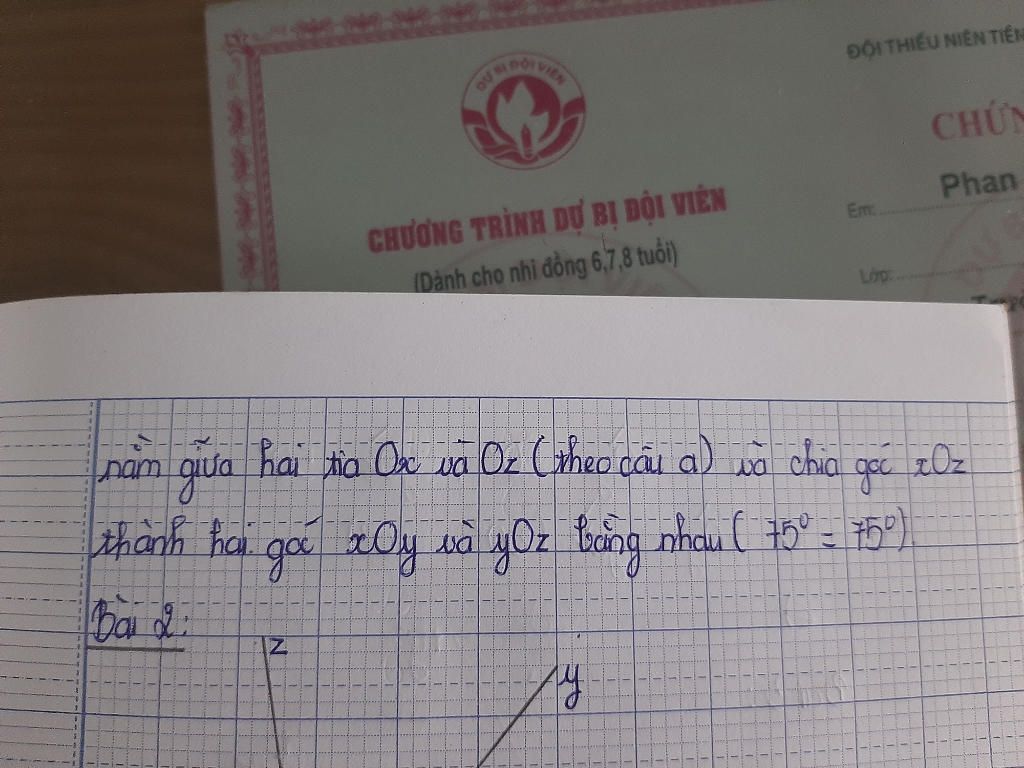 DỰ BỊ ĐỘI VIÊN
ĐỘI THIẾU NIÊN TIỀN
CHỨN
CHƯƠNG TRÌNH DỰ BỊ ĐỘI VIÊN
Em: Phan
(Dành cho nhi đồng 6,7,8 tuổi)
Lớp:
nằm giữa hai tia Ox và Oz (theo câu a) và chia góc xOz
thành hai góc xOy và yOz bằng nhau ( 75⁰ = 75⁰)
Bài 2:
z
y